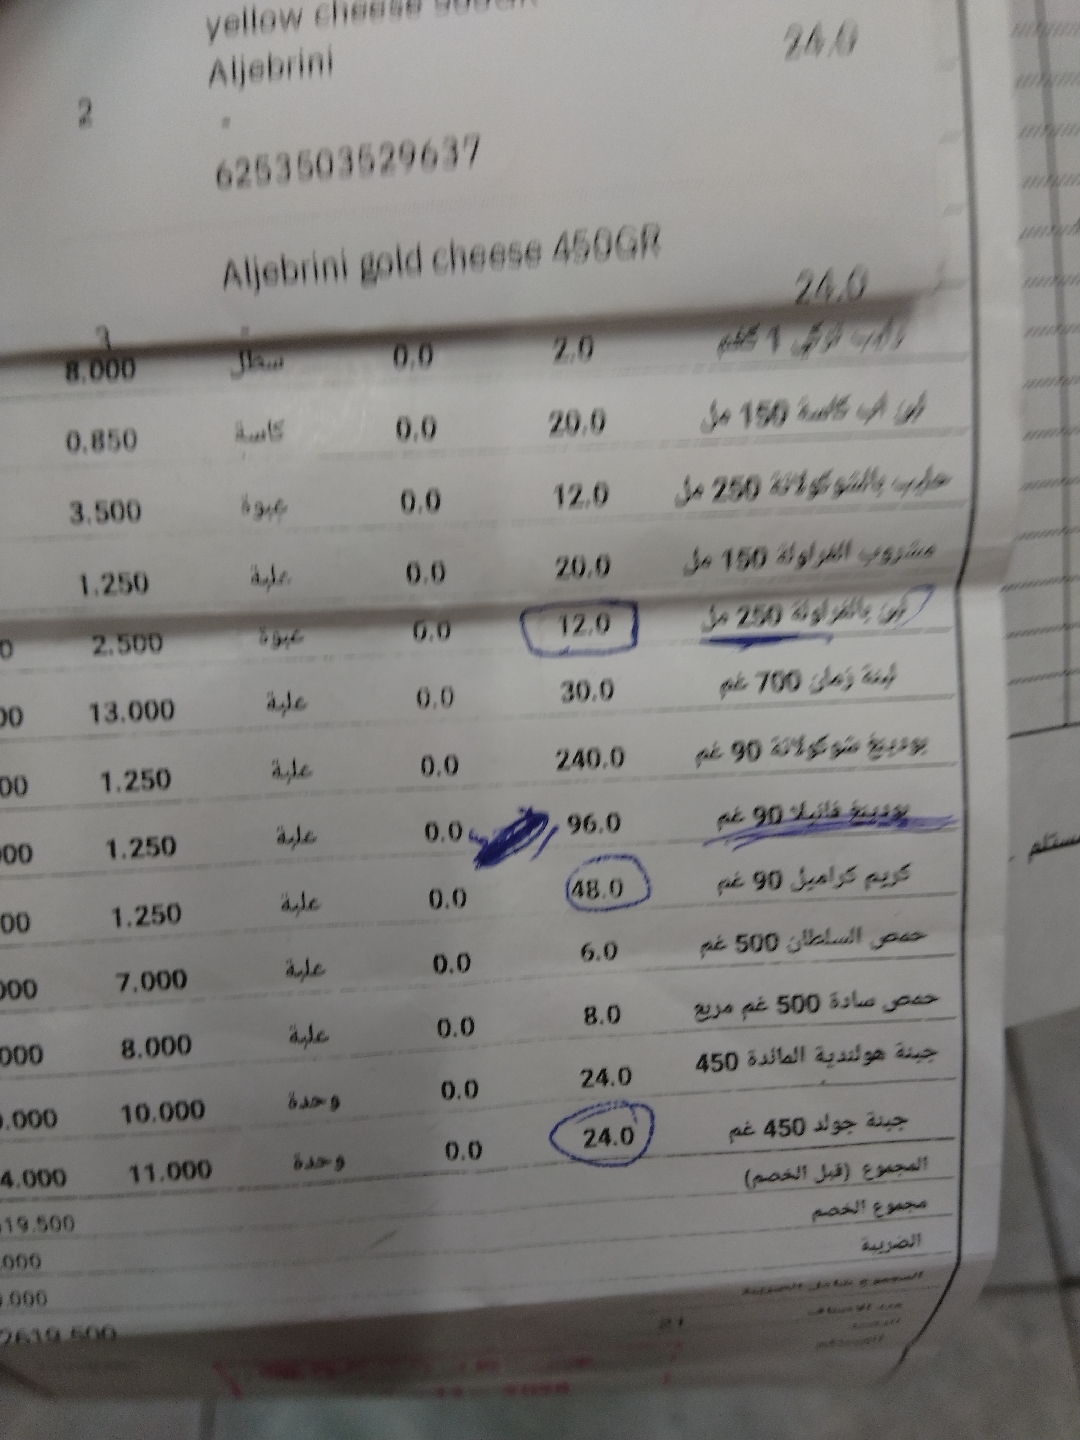 yellow cheese
Aljebrini
24.0
2
6253503529637
Aljebrini gold cheese 450GR
24.0
1 كغم 2.0 0.0 سطل 8.000
كاسة 150 مل 20.0 0.0 كاسة 0.850
حليب بالشوكولاتة 250 مل 12.0 0.0 عبوة 3.500
مشروب الفراولة 150 مل 20.0 0.0 علبة 1.250
بالفراولة 250 مل 12.0 0.0 عبوة 2.500 0
لبنة 700 غم 30.0 0.0 علبة 13.000 00
بودينغ شوكولاتة 90 غم 240.0 0.0 علبة 1.250 00
بودينغ فانيلا 90 غم 96.0 0.0 علبة 1.250 000
كريم كراميل 90 غم 48.0 0.0 علبة 1.250 00
حمص السلطان 500 غم 6.0 0.0 علبة 7.000 000
حمص سادة 500 غم مربع 8.0 0.0 علبة 8.000 000
جبنة هولندية المائدة 450 24.0 0.0 وحدة 10.000 0.000
جبنة جولد 450 غم 24.0 0.0 وحدة 11.000 4.000
المجموع (قبل الخصم) 619.500
مجموع الخصم .000
الضريبة 0.000
المجموع شامل الضريبة 2619.500
21